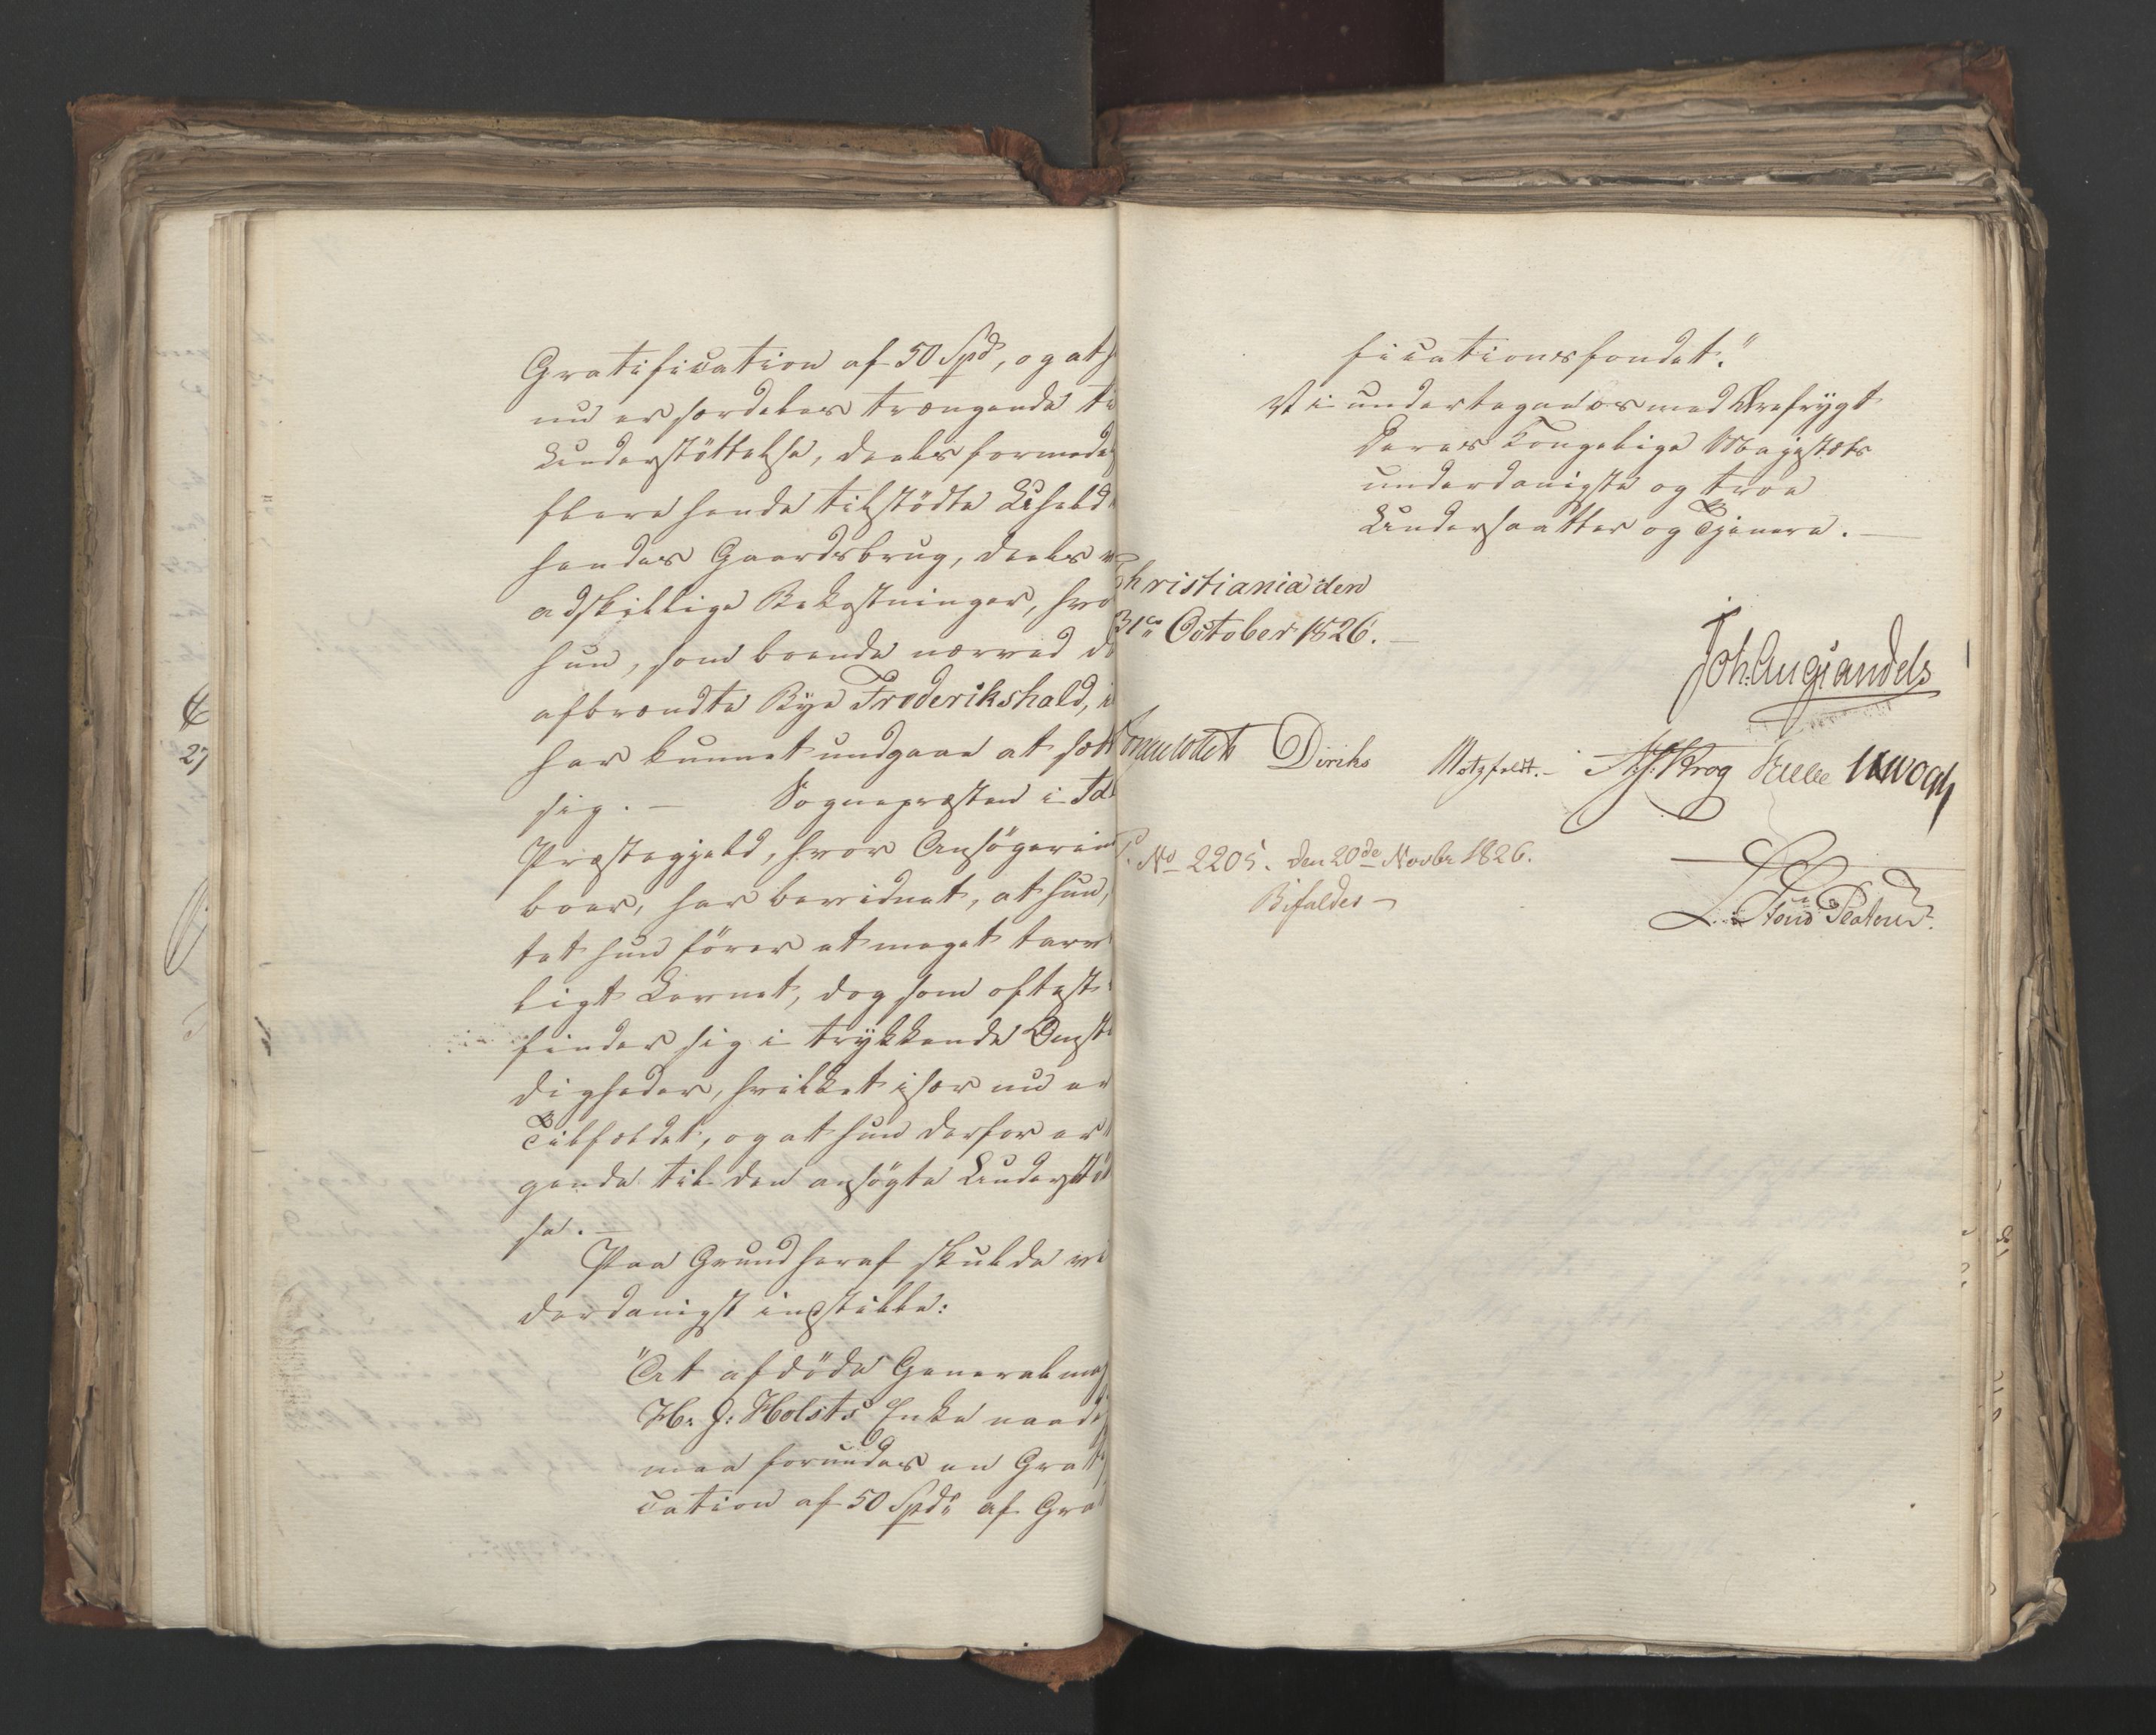 Gratification af 50 Spd, og at h
nu er særdeles trængende ti
Understöttelse, deels formedel
flere hende tilstödte Uheld
hendes Gaardsbrug, deels v
adskillige Bekostninger, hvo
hun, som boende nærved de
afbrændte Bye Frederikshald, i
har kunnet undgaae at sætt
sig. — Sognepræsten i Idd
Præstegjeld, hvor Ansögerin
boer, har bevidnet, at hun,
tet hun förer et meget tarve
ligt Levnet, dog som oftest
finder sig i trykkende Omst
digheder, hvilket især nu er
Tilfældet, og at hun derfor er
gende til den ansögte Understöt
se. —
Paa Grund heraf skulde vi
derdanigst indstille:
"At afdöde Generalmaj
Hr. J: Holsts Enke naadi
maa forundes en Gratifi
cation af 50 Spd af Gra
ficationsfondet."
Vi undertegne os med Ærefrygt
Deres Kongelige Majestæts
underdanigste og troe
Undersaatter og Tjenere. —
Christiania den
31 October 1826. —
Joh. Aug. Sandels
Diriks Motzfeldt. — Krog
P. No 2205. den 20de Novbr 1826.
Bifaldes —